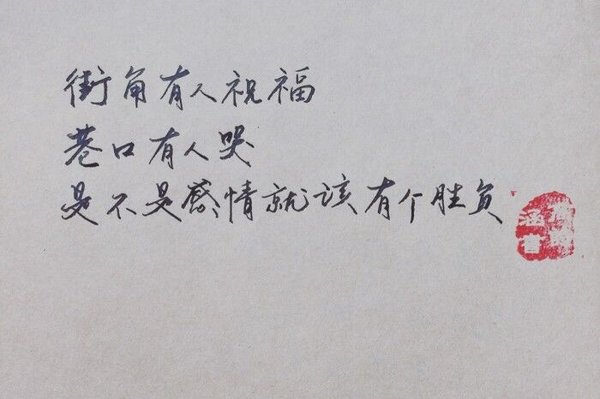 街角有人祝福
巷口有人哭
是不是感情就该有个胜负
涵書